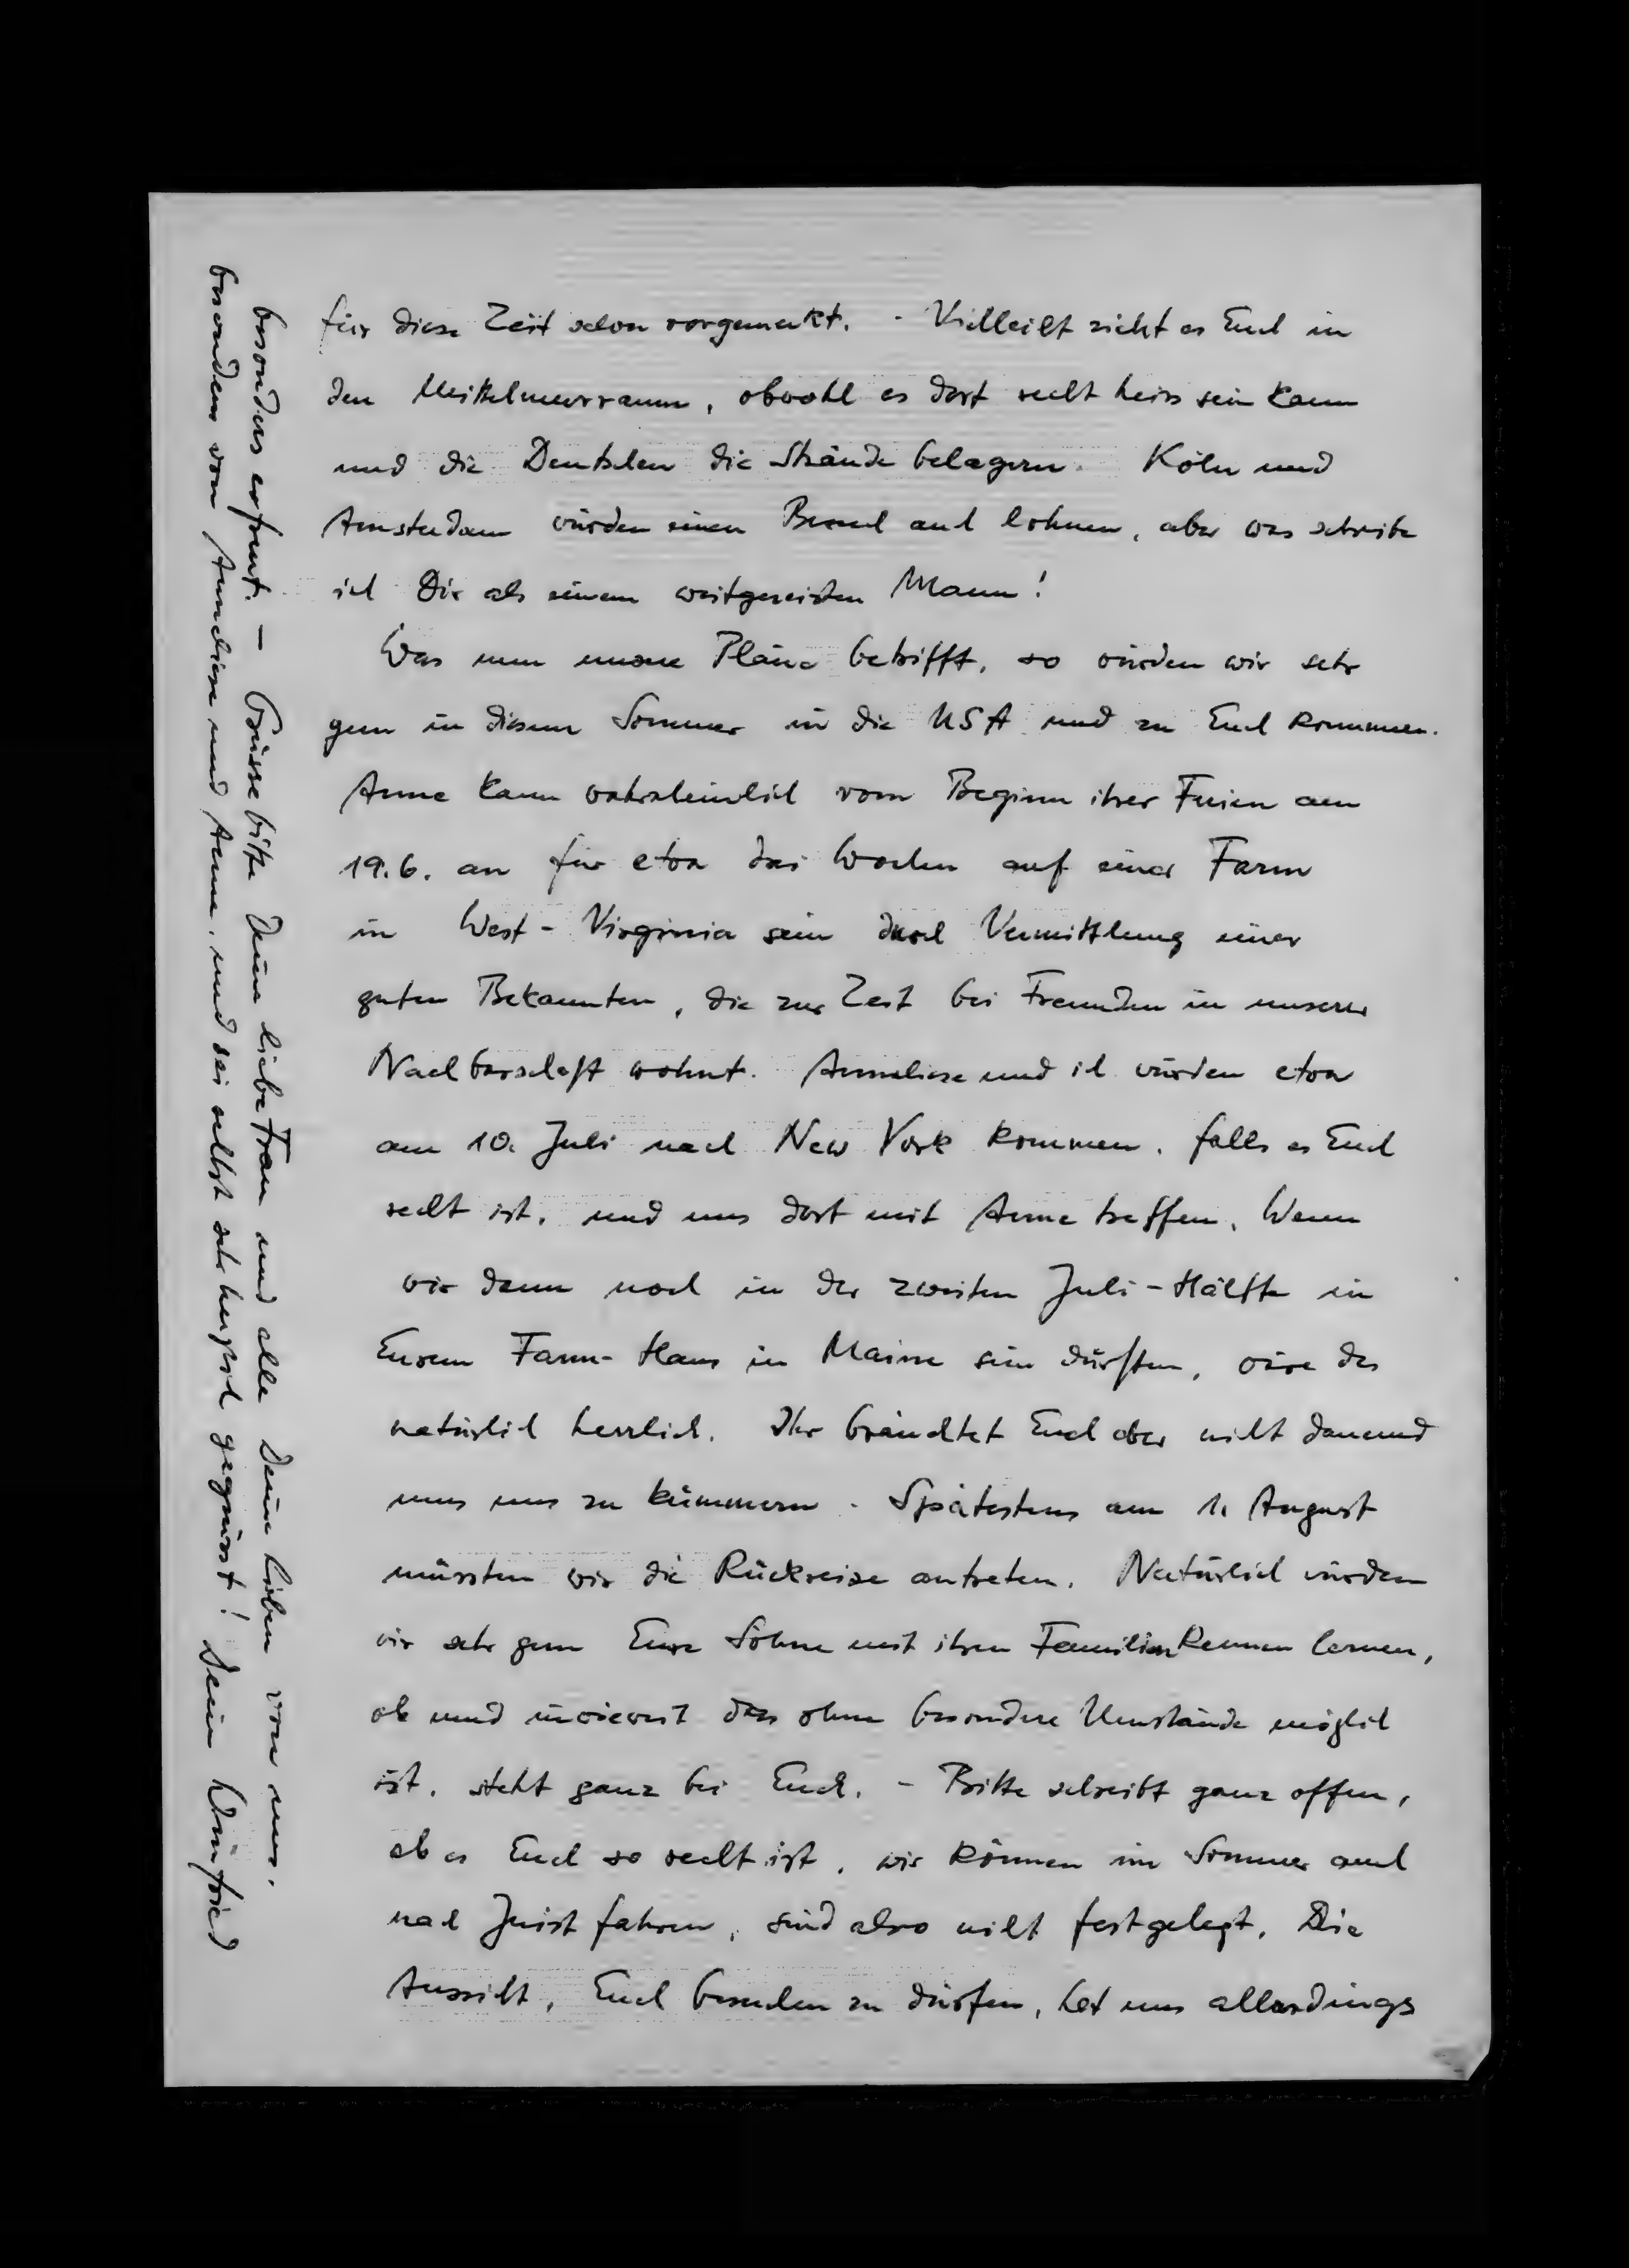 für diese Zeit schon vorgemerkt. - Vielleicht zieht es Euch in
den Mittelmeerraum, obwohl es dort recht heiss sein kann
und die Deutschen die Strände belagern. Köln und
Amsterdam würden einen Besuch auch lohnen, aber was schreibe
ich Dir als einem weitgereisten Mann!
Was nun unsere Pläne betrifft, so würden wir sehr
gern in diesem Sommer in die USA und zu Euch kommen.
Anne kann wahrscheinlich vom Beginn ihrer Ferien am
19.6. an für etwa drei Wochen auf einer Farm
in West-Virginia sein durch Vermittlung einer
guten Bekannten, die zur Zeit bei Freunden in unserer
Nachbarschaft wohnt. Anneliese und ich würden etwa
am 10. Juli nach New York kommen, falls es Euch
recht ist, und uns dort mit Anne treffen. Wenn
wir dann noch in der zweiten Juli-Hälfte in
Eurem Farm-Haus in Maine sein dürften, wäre das
natürlich herrlich. Ihr bräuchtet Euch aber nicht dauernd
um uns zu kümmern. Spätestens am 1. August
müssten wir die Rückreise antreten. Natürlich würden
wir sehr gern Eure Söhne mit ihren Familien kennen lernen,
ob und inwieweit das ohne besondere Umstände möglich
ist, steht ganz bei Euch. - Bitte schreibt ganz offen,
ob es Euch so recht ist, wir können im Sommer auch
nach Juist fahren, sind also nicht festgelegt. Die
Aussicht, Euch besuchen zu dürfen, hat uns allerdings
besonders erfreut. - Grüsse bitte Deine liebe Frau und alle Deine Lieben von uns,
besonders von Anneliese und Anne, und sei selbst sehr herzlich gegrüsst! Dein Winfried